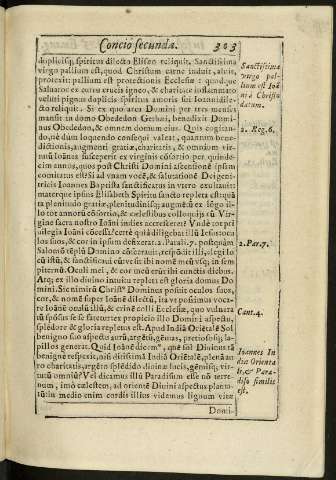 Concio secunda. 323
duplicisq; spiritus dilecto Eliseo reliquit. Sanctissima
virgo pallium est, quod Christum carne induit, aluit,
protexit: pallium est protectionis Ecclesiæ: quodque
Saluator ex cuius crucis igneo, & charitate inflammato
veluti pignus duplicis spiritus amoris sui Ioanni dile-
cto reliquit. Si ex quo arca Domini per tres menses
mansit in domo Obededon Gethæi, benedixit Domi-
nus Obededon, & omnem domum eius. Quis cogitatio-
ne, ne dum loquendo consequi valet, quantum bene-
dictionis, augmenti gratiæ, charitatis, & omnium vir-
tutū Ioānes susceperit ex virginis cōsortio per quinde-
cim annos, quos post Christi Domini ascensionē ipsum
comitatus est? Si ad vnam vocē, & salutationē Dei geni-
tricis Ioannes Baptista sanctificatus in vtero exultauit:
materque ipsius Elisabeth Spiritu sancto repleta est: quā-
ta plenitudo gratiæ, plenitudinisq; augmētū ex lōgo il-
lo tot annorū cōsortio, & cælestibus colloquijs cū Vir-
gine sacra nostro Ioāni indies accresceret?
los suos, & cor in ipsum defixerat. 2. Parali. 7. postquàm
Salomō tēplū Domino cōsecrauit, respōdit illi, elegi lo-
cū istū, & sanctificaui, cū vt se ibi nomē meū vsq; in sem
piternū. Oculi mei, & cor meū erūt ibi cunctis diebus.
Atq; ex illo diuino intuitu repleta est gloria domus Do
mini. Sic enim vt Christº Dominus posuit oculos suos,
cor, & nomē super Ioānē dilectū, ita vt possimus voca-
re Ioānē oculū illū, & crinē colli Ecclesiæ, quo vulnera
tū spōsus se fateretur
splēdore & gloria repletus est. Apud Indiā Oriētalē Sol
benigno suo aspectu aurū, argētū, gēmas, pretiososq; la-
pillos generat. Quid Ioānē dicemº, quē sol Diuinus tā
benignè respexit, nisi ditissimā Indiā Oriētalē, plenā au
ro charitatis, argēto splēdido diuinæ lucis, gēmisq; vir-
tutū omniū? Vel dicamus illū Paradisum esse nō terre-
num, imò cælestem, ad orientē Diuini aspectus planta-
tū: in medio enim cordis illius videmus lignum vitæ
Domi-
Sanctissima
virgo pal-
lium est Ioā
ni à Christo
datum.
2. Reg. 6.
2. Par. 7.
Cant. 4.
Ioannes In
dia Orienta
lis, & Para-
diso similis
est.